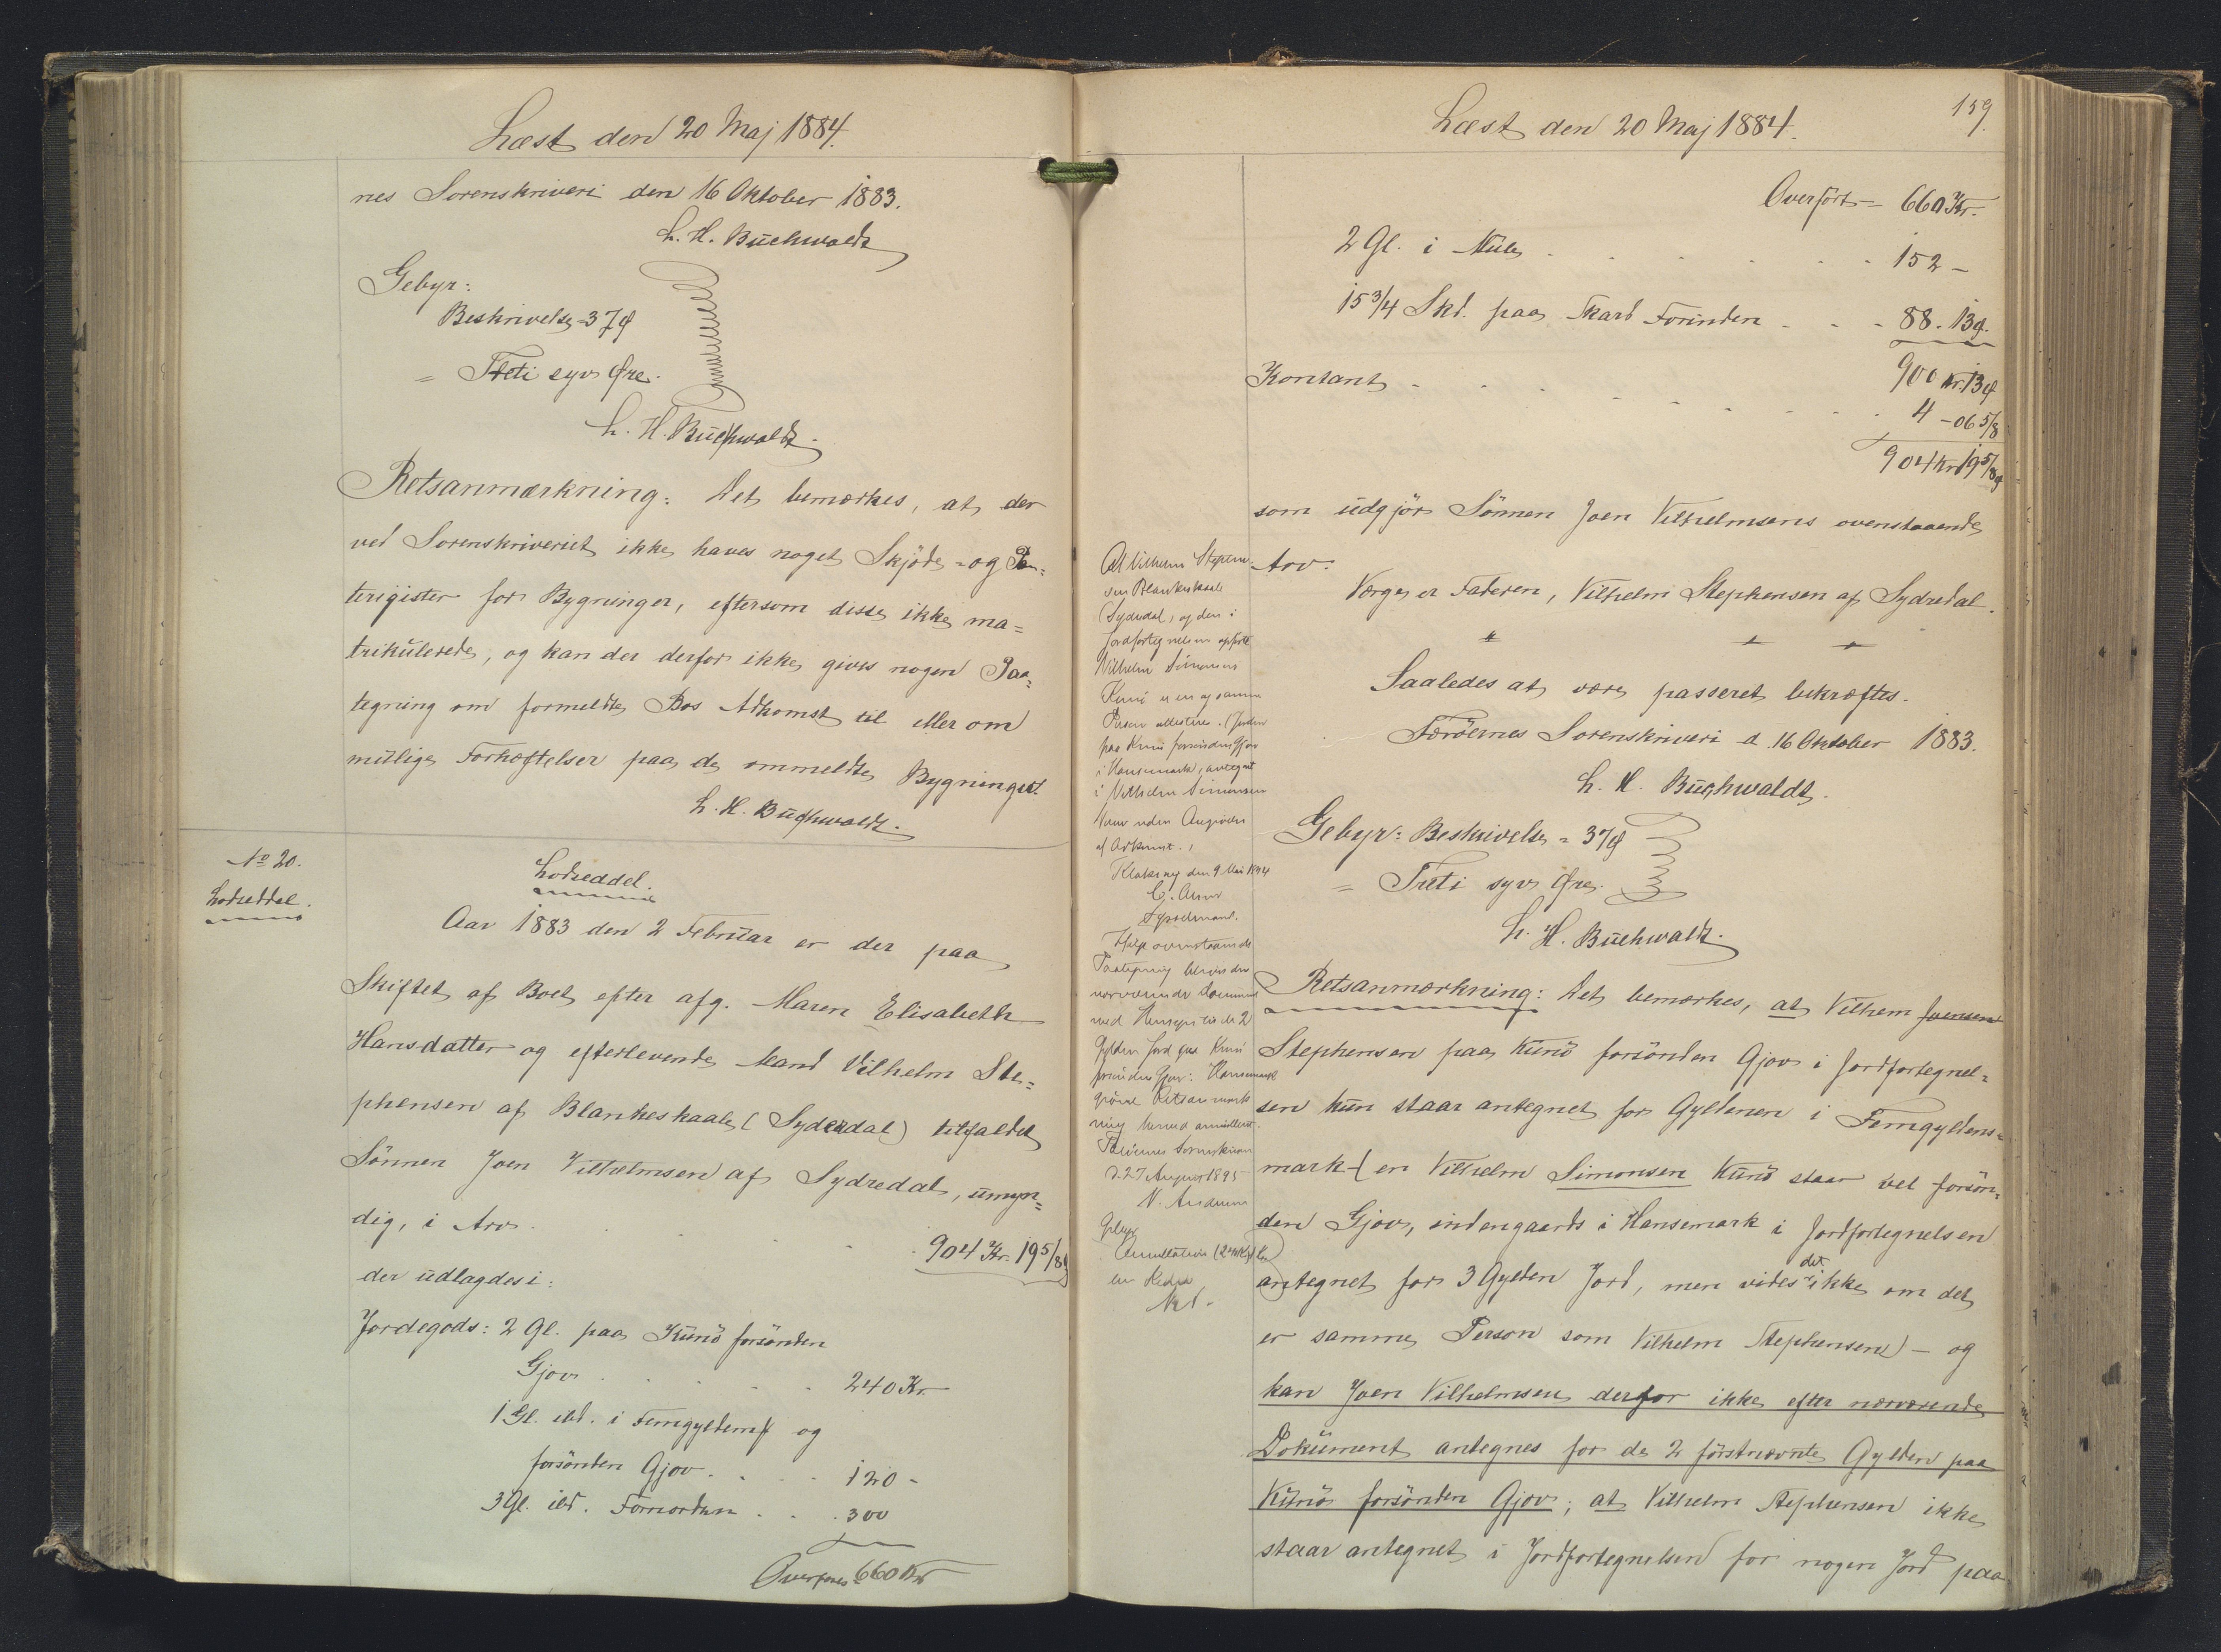 Læst den 20 Maj 1884.
nes Sorenskriveri den 16 Oktober 1883.
L. H. Buchwaldt
Gebyr:
Beskrivelse = 37 Ø
= Treti syv Øre.
L. H. Buchwaldt.
Retsanmærkning: Det bemærkes, at der
ved Sorenskriveriet ikke haves noget Skjöde- og Pan=
teregister for Bygninger, eftersom disse ikke ma=
trikulerede, og kan der derfor ikke gives nogen Paa=
tegning om formeldte Bos Adkomst til eller om
mulige Forhæftelser paa de ommeldte Bygninger.
L. H. Buchwaldt.
No 20.
Lodseddel.
Lodseddel.
Aar 1883 den 2 Februar er der paa
Skiftet af Boet efter afg. Maren Elisabeth
Hansdatter og efterlevende Mand Vilhelm Ste=
phensen af Blankeskaale (Sydredal) tilfaldet
Sönnen Joen Vilhelmsen af Sydredal, umyn=
dig, i Arv . . . . 904 Kr. 19 5/8 Ø
der udlagdes i:
Jordegods: 2 Gl. paa Kunö forsönden
Gjov . . . . . 240 Kr.
1 Gl. ibd. i Femgyldenm og
forsönden Gjov . . . . 120 -
3 Gl. ibd. Fornorden . . . 300
Overföres = 660 Kr
Læst den 20 Maj 1884.
159
Overfört = 660 Kr.
2 Gl. i Mule . . . . . . 152 -
15 3/4 Skd. paa Skard Forinden . . . 88. 13 Ø.
900 Kr. 13 Ø
Kontant . . . . . . . . 4 - 06 5/8
904 Kr 19 5/8 Ø
som udgjör Sönnen Joen Vilhelmsens ovenstaaende
Arv.
Værge er Faderen, Vilhelm Stephensen af Sydredal.
Saaledes at være passeret bekræftes.
Færöernes Sorenskriveri d. 16 Oktober 1883.
L. H. Buchwaldt.
Gebyr: Beskrivelse = 37 Ø
= Treti syv Øre.
L. H. Buchwaldt.
Retsanmærkning: Det bemærkes, at Vilhem Joensen
Stephensen paa Kunö forsönden Gjov i Jordfortegnel=
sen kun staar antegnet for Gyldenen i Femgyldens=
mark - (en Vilhelm Simonsen Kunö staar vel forsön=
den Gjov, indengaards i Hansemark i Jordfortegnelsen
antegnet for 3 Gylden Jord, men vides det ikke om det
er samme Person som Vilhelm Stephensen) - og
kan Joen Vilhelmsen derfor ikke efter nærværende
Dokument antegnes for de 2 förstnævnte Gylden paa
Kunö forsönden Gjov; at Vilhelm Stephensen ikke
staar antegnet i Jordfortegnelsen for nogen Jord paa
At Vilhelm Stephen-
sen Blankeskaale
(Sydredal), og den i
Jordfortegnelsen opförte
Vilhelm Simonsen
Kunö er en og samme
Person attesteres. (Jorden
paa Kunö forsönden Gjov
i Hansemark, antegnet
i Vilhelm Simonsens
Navn uden Angivelse
af Adkomst.)
Klaksvig den 9 Mai 1894
Sysselmand.
Ifölge ovenstaaende
Paategning bliver den
nærværende Dokument
med Hensyn til de 2
Gylden Jord paa Kunö
forsönden Gjov i Hansemark
gjorte Retsanmærk
ning herved annulleret.
Færöernes Sorenskriveri
d. 27 August 1895
Gebyr